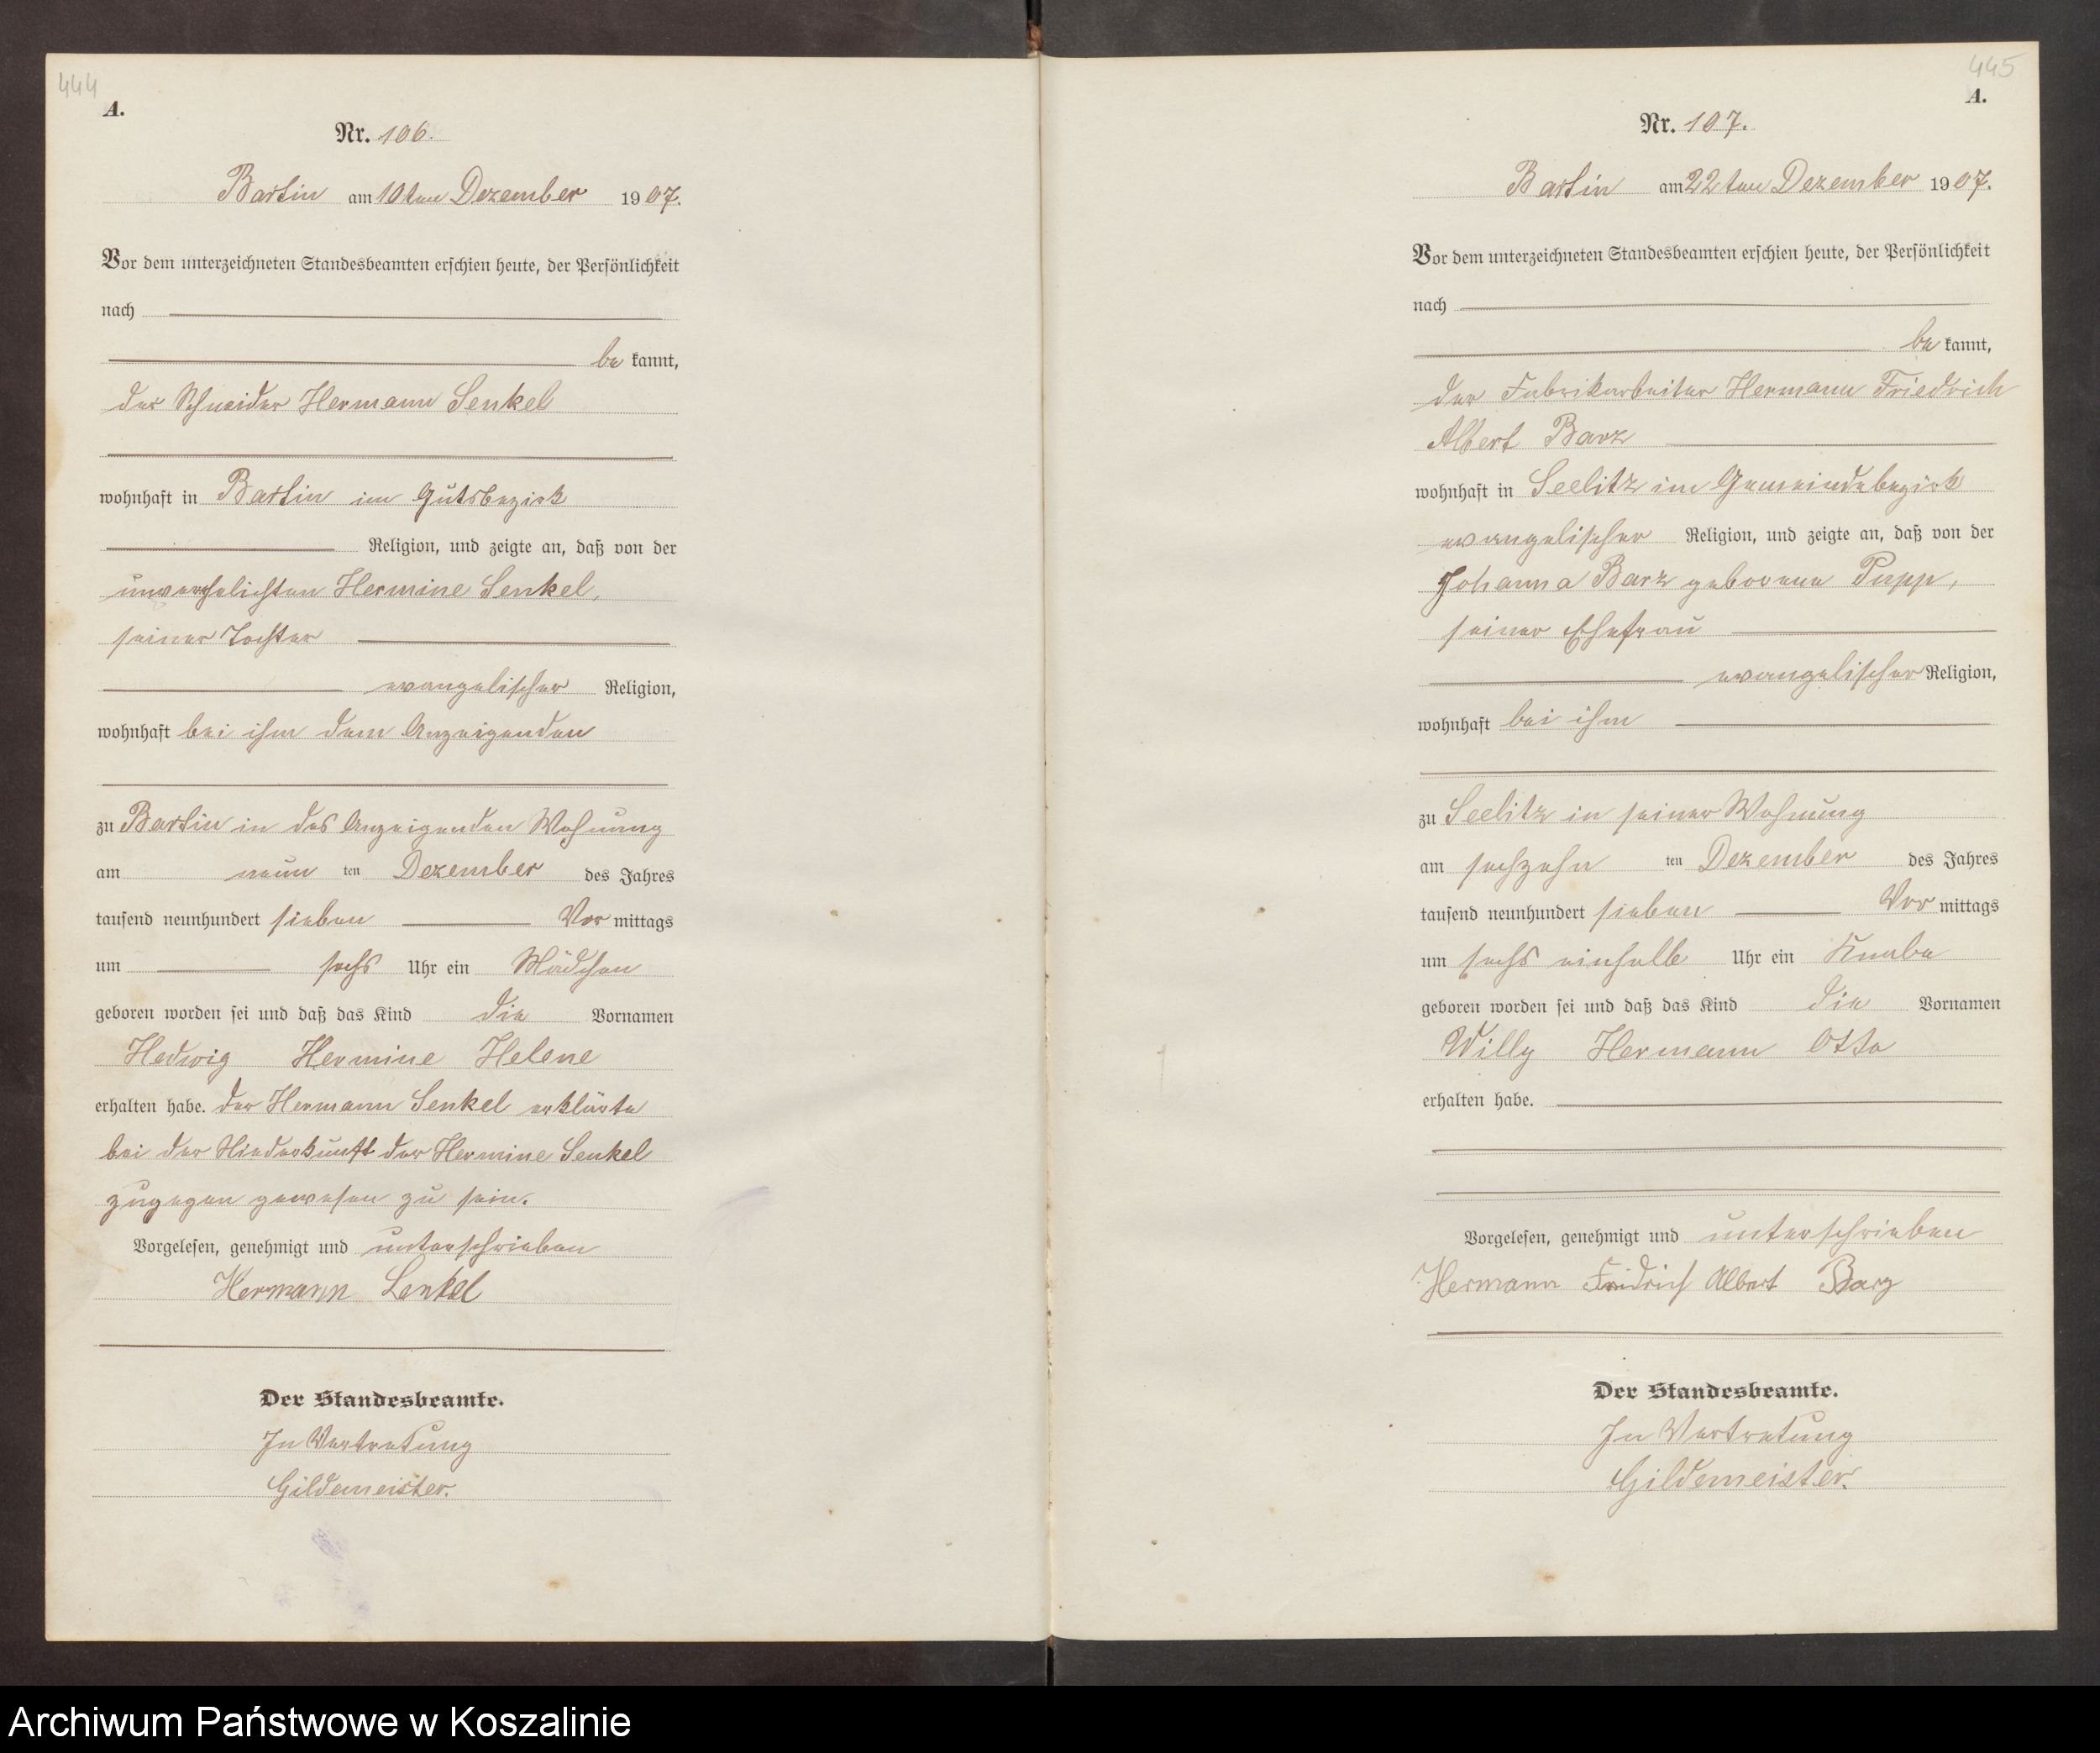 444
A.
Nr. 106.
Bartin am 10ten Dezember 1907.
Vor dem unterzeichneten Standesbeamten erschien heute, der Persönlichkeit
nach
be kannt,
der Schneider Hermann Senkel
wohnhaft in Bartin im Gutsbezirk
Religion, und zeigte an, daß von der
unverehelichten Hermine Senkel,
seiner Tochter
evangelischer Religion,
wohnhaft bei ihm dem Anzeigenden
zu Bartin in des Anzeigenden Wohnung
am neun ten Dezember des Jahres
tausend neunhundert sieben Vor mittags
um sechs Uhr ein Mädchen
geboren worden sei und daß das Kind die Vornamen
Hedwig Hermine Helene
erhalten habe. Der Hermann Senkel erklärte
bei der Niederkunft der Hermine Senkel
zugegen gewesen zu sein.
Vorgelesen, genehmigt und unterschrieben
Hermann Senkel
Der Standesbeamte.
In Vertretung
Gildemeister.
445
A.
Nr. 107.
Bartin am 22ten Dezember 1907.
Vor dem unterzeichneten Standesbeamten erschien heute, der Persönlichkeit
nach
be kannt,
der Fabrikarbeiter Hermann Friedrich
Albert Barz
wohnhaft in Seelitz im Gemeindebezirk
evangelischer Religion, und zeigte an, daß von der
Johanna Barz geborene Papp,
seiner Ehefrau
evangelischer Religion,
wohnhaft bei ihm
zu Seelitz in seiner Wohnung
am sechzehn ten Dezember des Jahres
tausend neunhundert sieben Vor mittags
um sechs einhalb Uhr ein Knabe
geboren worden sei und daß das Kind die Vornamen
Willy Hermann Otto
erhalten habe.
Vorgelesen, genehmigt und unterschrieben
Hermann Fridrich Albert Barz
Der Standesbeamte.
In Vertretung
Gildemeister.
Archiwum Państwowe w Koszalinie